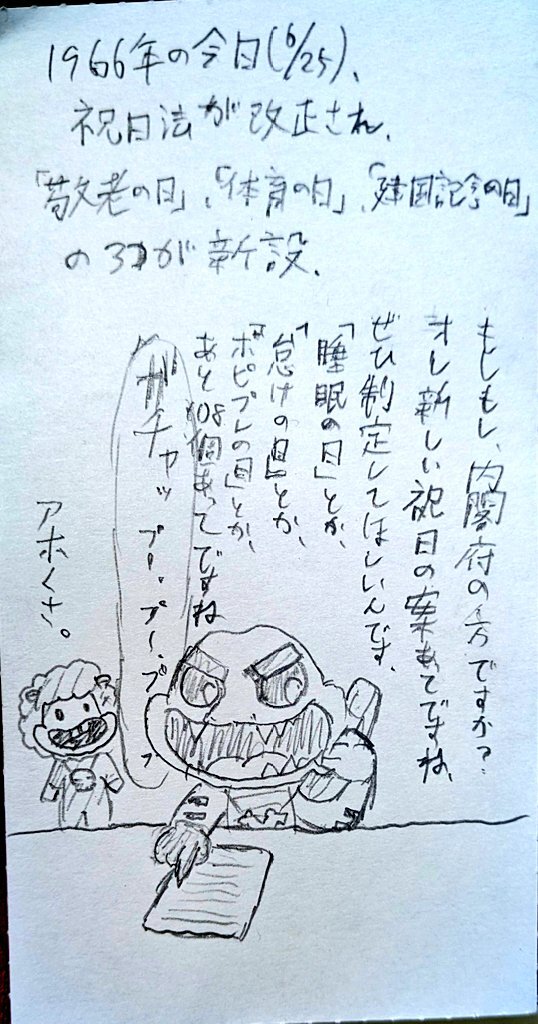 1966年の今日(6/25)、
祝日法が改正され、
「敬老の日」、「体育の日」、「建国記念の日」
の3つが新設、
もしもし、内閣府の方ですか？
オレ新しい祝日の案あてですね、
ぜひ制定してほしいんです、
「睡眠の日」とか、
「怠けの日」とか、
「ポピプレの日」とか、
あと108個あってですね
ガチャップー、プー、プ、プ
アホくさ。